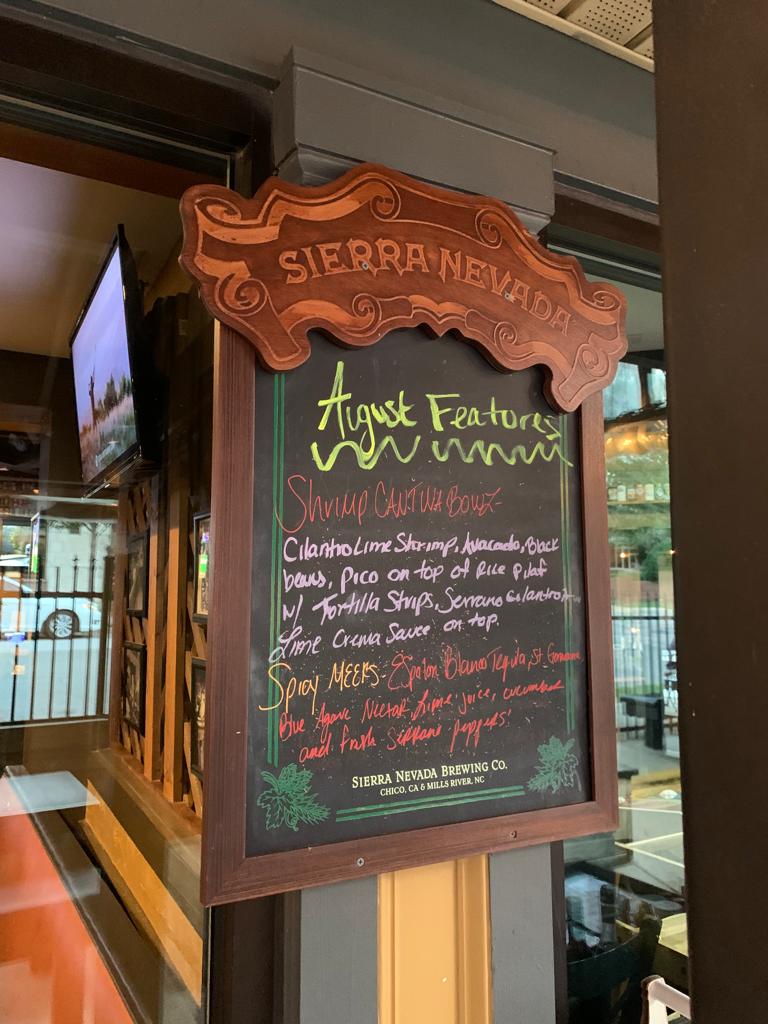 SIERRA NEVADA
August Features
Shrimp CANTINA BOWL-
Cilantro Lime Shrimp, Avacado, Black
beans, pico on top of Rice pilaf
w/ Tortilla Strips, Serrano Cilantro
Lime Crema Sauce on top.
Spicy MEEKS- Espolon Blanco Tequila, St. Germaine
Blue Agave Nectar, Lime juice, cucumber
and fresh serrano peppers!
SIERRA NEVADA BREWING CO.
CHICO, CA & MILLS RIVER, NC